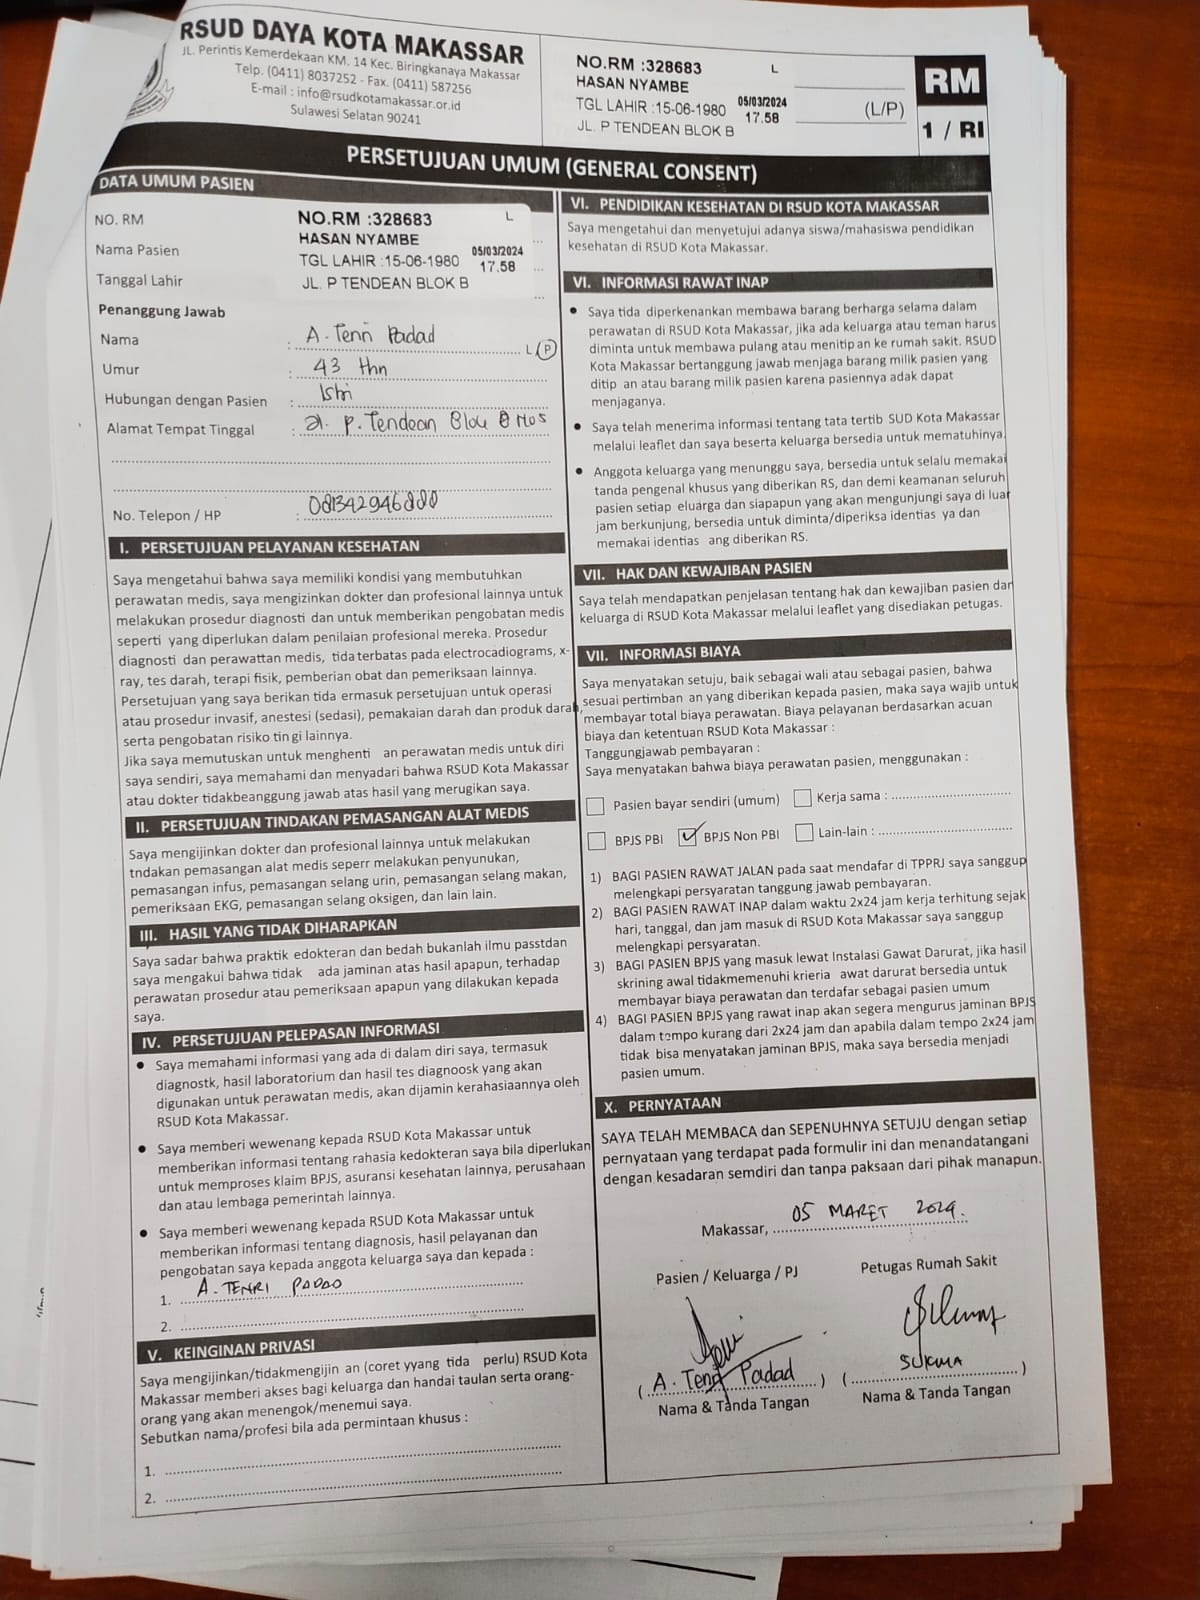 RSUD DAYA KOTA MAKASSAR
JL. Perintis Kemerdekaan KM. 14 Kec. Biringkanaya Makassar
Telp. (0411) 8037252 - Fax. (0411) 587256
E-mail : info@rsudkotamakassar.or.id
Sulawesi Selatan 90241
NO.RM :328683 L
HASAN NYAMBE
TGL LAHIR :15-06-1980 05/03/2024 17.58
JL. P TENDEAN BLOK B
(L/P)
RM
1 / RI
PERSETUJUAN UMUM (GENERAL CONSENT)
DATA UMUM PASIEN
NO. RM
Nama Pasien
Tanggal Lahir
NO.RM :328683 L
HASAN NYAMBE
TGL LAHIR :15-06-1980 05/03/2024 17.58
JL. P TENDEAN BLOK B
Penanggung Jawab
Nama : A. Tenri Padad L/P
Umur : 43 thn
Hubungan dengan Pasien : Istri
Alamat Tempat Tinggal : Jl. P. Tendean Blok B No5
No. Telepon / HP : 081342946888
I. PERSETUJUAN PELAYANAN KESEHATAN
Saya mengetahui bahwa saya memiliki kondisi yang membutuhkan
perawatan medis, saya mengizinkan dokter dan profesional lainnya untuk
melakukan prosedur diagnosti dan untuk memberikan pengobatan medis
seperti yang diperlukan dalam penilaian profesional mereka. Prosedur
diagnosti dan perawattan medis, tida terbatas pada electrocadiograms, x-
ray, tes darah, terapi fisik, pemberian obat dan pemeriksaan lainnya.
Persetujuan yang saya berikan tida ermasuk persetujuan untuk operasi
atau prosedur invasif, anestesi (sedasi), pemakaian darah dan produk darah,
serta pengobatan risiko tin gi lainnya.
Jika saya memutuskan untuk menghenti an perawatan medis untuk diri
saya sendiri, saya memahami dan menyadari bahwa RSUD Kota Makassar
atau dokter tidakbeanggung jawab atas hasil yang merugikan saya.
II. PERSETUJUAN TINDAKAN PEMASANGAN ALAT MEDIS
Saya mengijinkan dokter dan profesional lainnya untuk melakukan
tndakan pemasangan alat medis seperr melakukan penyunukan,
pemasangan infus, pemasangan selang urin, pemasangan selang makan,
pemeriksaan EKG, pemasangan selang oksigen, dan lain lain.
III. HASIL YANG TIDAK DIHARAPKAN
Saya sadar bahwa praktik edokteran dan bedah bukanlah ilmu passtdan
saya mengakui bahwa tidak ada jaminan atas hasil apapun, terhadap
perawatan prosedur atau pemeriksaan apapun yang dilakukan kepada
saya.
IV. PERSETUJUAN PELEPASAN INFORMASI
• Saya memahami informasi yang ada di dalam diri saya, termasuk
diagnostk, hasil laboratorium dan hasil tes diagnoosk yang akan
digunakan untuk perawatan medis, akan dijamin kerahasiaannya oleh
RSUD Kota Makassar.
• Saya memberi wewenang kepada RSUD Kota Makassar untuk
memberikan informasi tentang rahasia kedokteran saya bila diperlukan
untuk memproses klaim BPJS, asuransi kesehatan lainnya, perusahaan
dan atau lembaga pemerintah lainnya.
• Saya memberi wewenang kepada RSUD Kota Makassar untuk
memberikan informasi tentang diagnosis, hasil pelayanan dan
pengobatan saya kepada anggota keluarga saya dan kepada :
1. A. TENRI PADAD
2.
V. KEINGINAN PRIVASI
Saya mengijinkan/tidakmengijin an (coret yyang tida perlu) RSUD Kota
Makassar memberi akses bagi keluarga dan handai taulan serta orang-
orang yang akan menengok/menemui saya.
Sebutkan nama/profesi bila ada permintaan khusus :
1.
2.
VI. PENDIDIKAN KESEHATAN DI RSUD KOTA MAKASSAR
Saya mengetahui dan menyetujui adanya siswa/mahasiswa pendidikan
kesehatan di RSUD Kota Makassar.
VI. INFORMASI RAWAT INAP
• Saya tida diperkenankan membawa barang berharga selama dalam
perawatan di RSUD Kota Makassar, jika ada keluarga atau teman harus
diminta untuk membawa pulang atau menitip an ke rumah sakit. RSUD
Kota Makassar bertanggung jawab menjaga barang milik pasien yang
ditip an atau barang milik pasien karena pasiennya adak dapat
menjaganya.
• Saya telah menerima informasi tentang tata tertib SUD Kota Makassar
melalui leaflet dan saya beserta keluarga bersedia untuk mematuhinya.
• Anggota keluarga yang menunggu saya, bersedia untuk selalu memakai
tanda pengenal khusus yang diberikan RS, dan demi keamanan seluruh
pasien setiap eluarga dan siapapun yang akan mengunjungi saya di luar
jam berkunjung, bersedia untuk diminta/diperiksa identias ya dan
memakai identias ang diberikan RS.
VII. HAK DAN KEWAJIBAN PASIEN
Saya telah mendapatkan penjelasan tentang hak dan kewajiban pasien dan
keluarga di RSUD Kota Makassar melalui leaflet yang disediakan petugas.
VII. INFORMASI BIAYA
Saya menyatakan setuju, baik sebagai wali atau sebagai pasien, bahwa
sesuai pertimban an yang diberikan kepada pasien, maka saya wajib untuk
membayar total biaya perawatan. Biaya pelayanan berdasarkan acuan
biaya dan ketentuan RSUD Kota Makassar :
Tanggungjawab pembayaran :
Saya menyatakan bahwa biaya perawatan pasien, menggunakan :
Pasien bayar sendiri (umum) Kerja sama :
BPJS PBI ✓ BPJS Non PBI Lain-lain :
1) BAGI PASIEN RAWAT JALAN pada saat mendafar di TPPRJ saya sanggup
melengkapi persyaratan tanggung jawab pembayaran.
2) BAGI PASIEN RAWAT INAP dalam waktu 2x24 jam kerja terhitung sejak
hari, tanggal, dan jam masuk di RSUD Kota Makassar saya sanggup
melengkapi persyaratan.
3) BAGI PASIEN BPJS yang masuk lewat Instalasi Gawat Darurat, jika hasil
skrining awal tidakmemenuhi krieria awat darurat bersedia untuk
membayar biaya perawatan dan terdafar sebagai pasien umum
4) BAGI PASIEN BPJS yang rawat inap akan segera mengurus jaminan BPJS
dalam tempo kurang dari 2x24 jam dan apabila dalam tempo 2x24 jam
tidak bisa menyatakan jaminan BPJS, maka saya bersedia menjadi
pasien umum.
X. PERNYATAAN
SAYA TELAH MEMBACA dan SEPENUHNYA SETUJU dengan setiap
pernyataan yang terdapat pada formulir ini dan menandatangani
dengan kesadaran semdiri dan tanpa paksaan dari pihak manapun.
Makassar, 05 MARET 2024.
Pasien / Keluarga / PJ Petugas Rumah Sakit
( A. Tenri Padad ) ( SUKMA )
Nama & Tanda Tangan Nama & Tanda Tangan